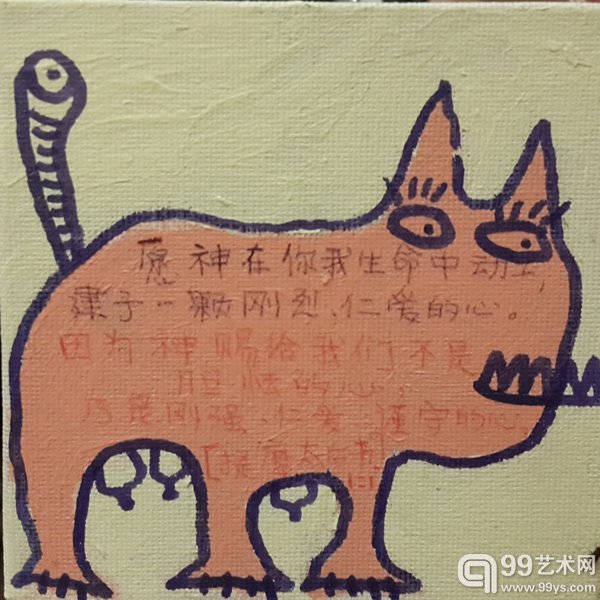 愿神在你我生命中动工,
一颗刚烈、仁爱的心。
因为神赐给我们不是
胆怯的心,
乃是刚强、仁爱、谨守的心。
[提摩太后书]
99艺术网
www.99ys.com